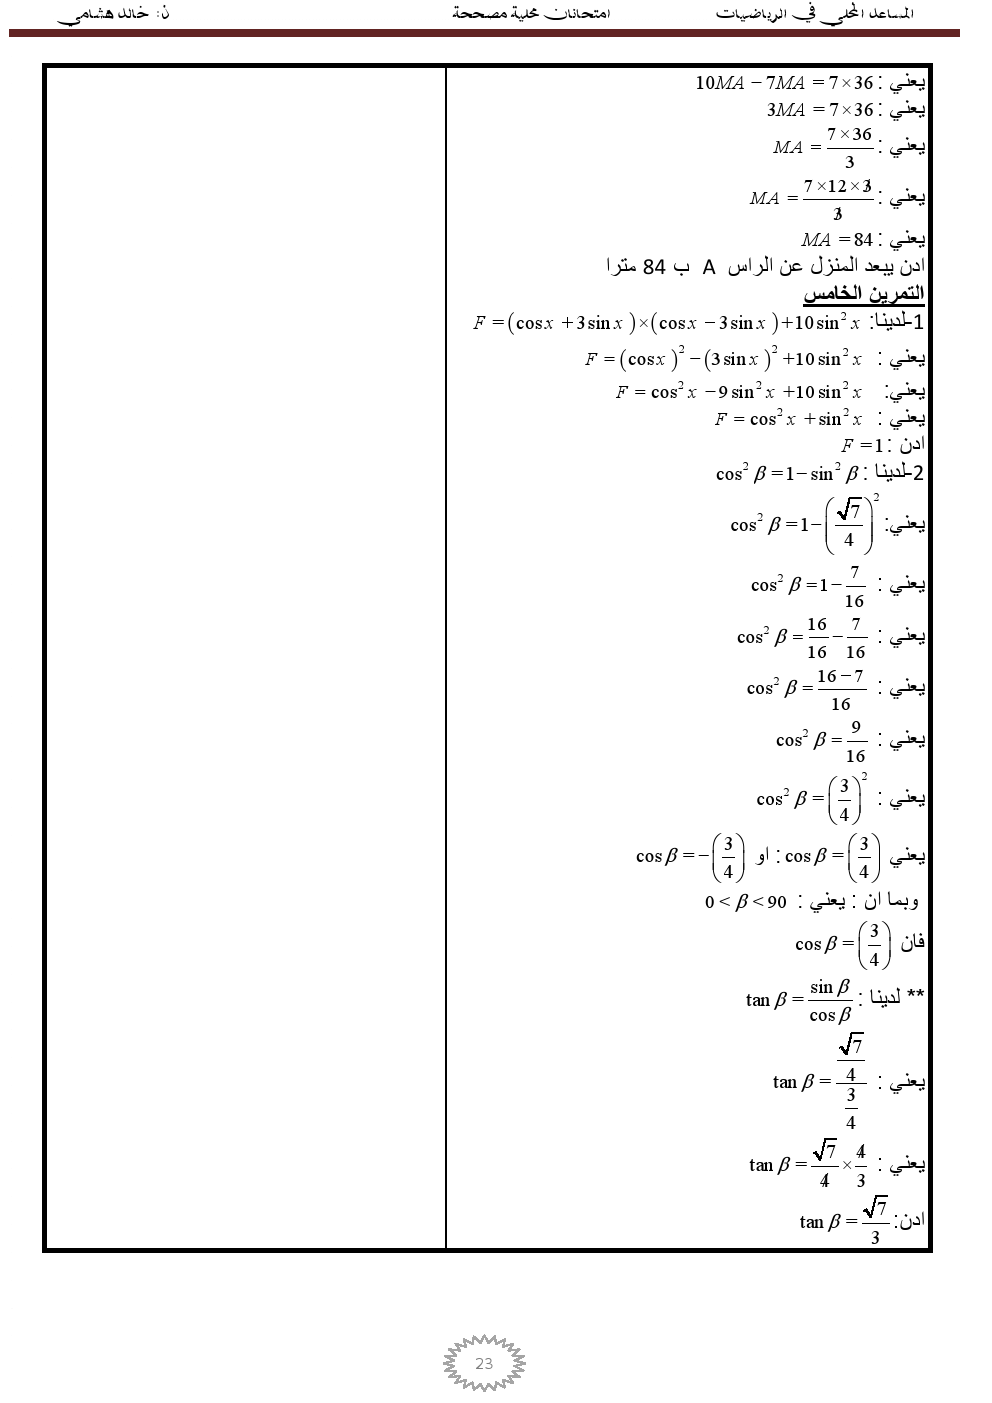 المساعد المحلي في الرياضيات امتحانات محلية مصححة ذ: خالد هشامي
يعني : 10MA − 7MA = 7×36
يعني : 3MA = 7×36
يعني : MA = \frac{7×36}{3}
يعني : MA = \frac{7×12×3}{3}
يعني : MA = 84
ادن يبعد المنزل عن الراس A ب 84 مترا
التمرين الخامس
1-لدينا: F = (cos x + 3 sin x)×(cos x − 3 sin x)+10 sin² x
يعني : F = (cos x)² − (3 sin x)² +10 sin² x
يعني: F = cos² x − 9 sin² x +10 sin² x
يعني : F = cos² x + sin² x
ادن : F = 1
2-لدينا : cos² β = 1− sin² β
يعني: cos² β = 1−(\frac{√7}{4})²
يعني : cos² β = 1− \frac{7}{16}
يعني : cos² β = \frac{16}{16} − \frac{7}{16}
يعني : cos² β = \frac{16−7}{16}
يعني : cos² β = \frac{9}{16}
يعني : cos² β = (\frac{3}{4})²
يعني cos β = (\frac{3}{4}) : او cos β = −(\frac{3}{4})
وبما ان : يعني : 0 < β < 90
فان cos β = (\frac{3}{4})
** لدينا : tan β = \frac{sin β}{cos β}
يعني : tan β = \frac{\frac{√7}{4}}{\frac{3}{4}}
يعني : tan β = \frac{√7}{4} × \frac{4}{3}
ادن: tan β = \frac{√7}{3}
23